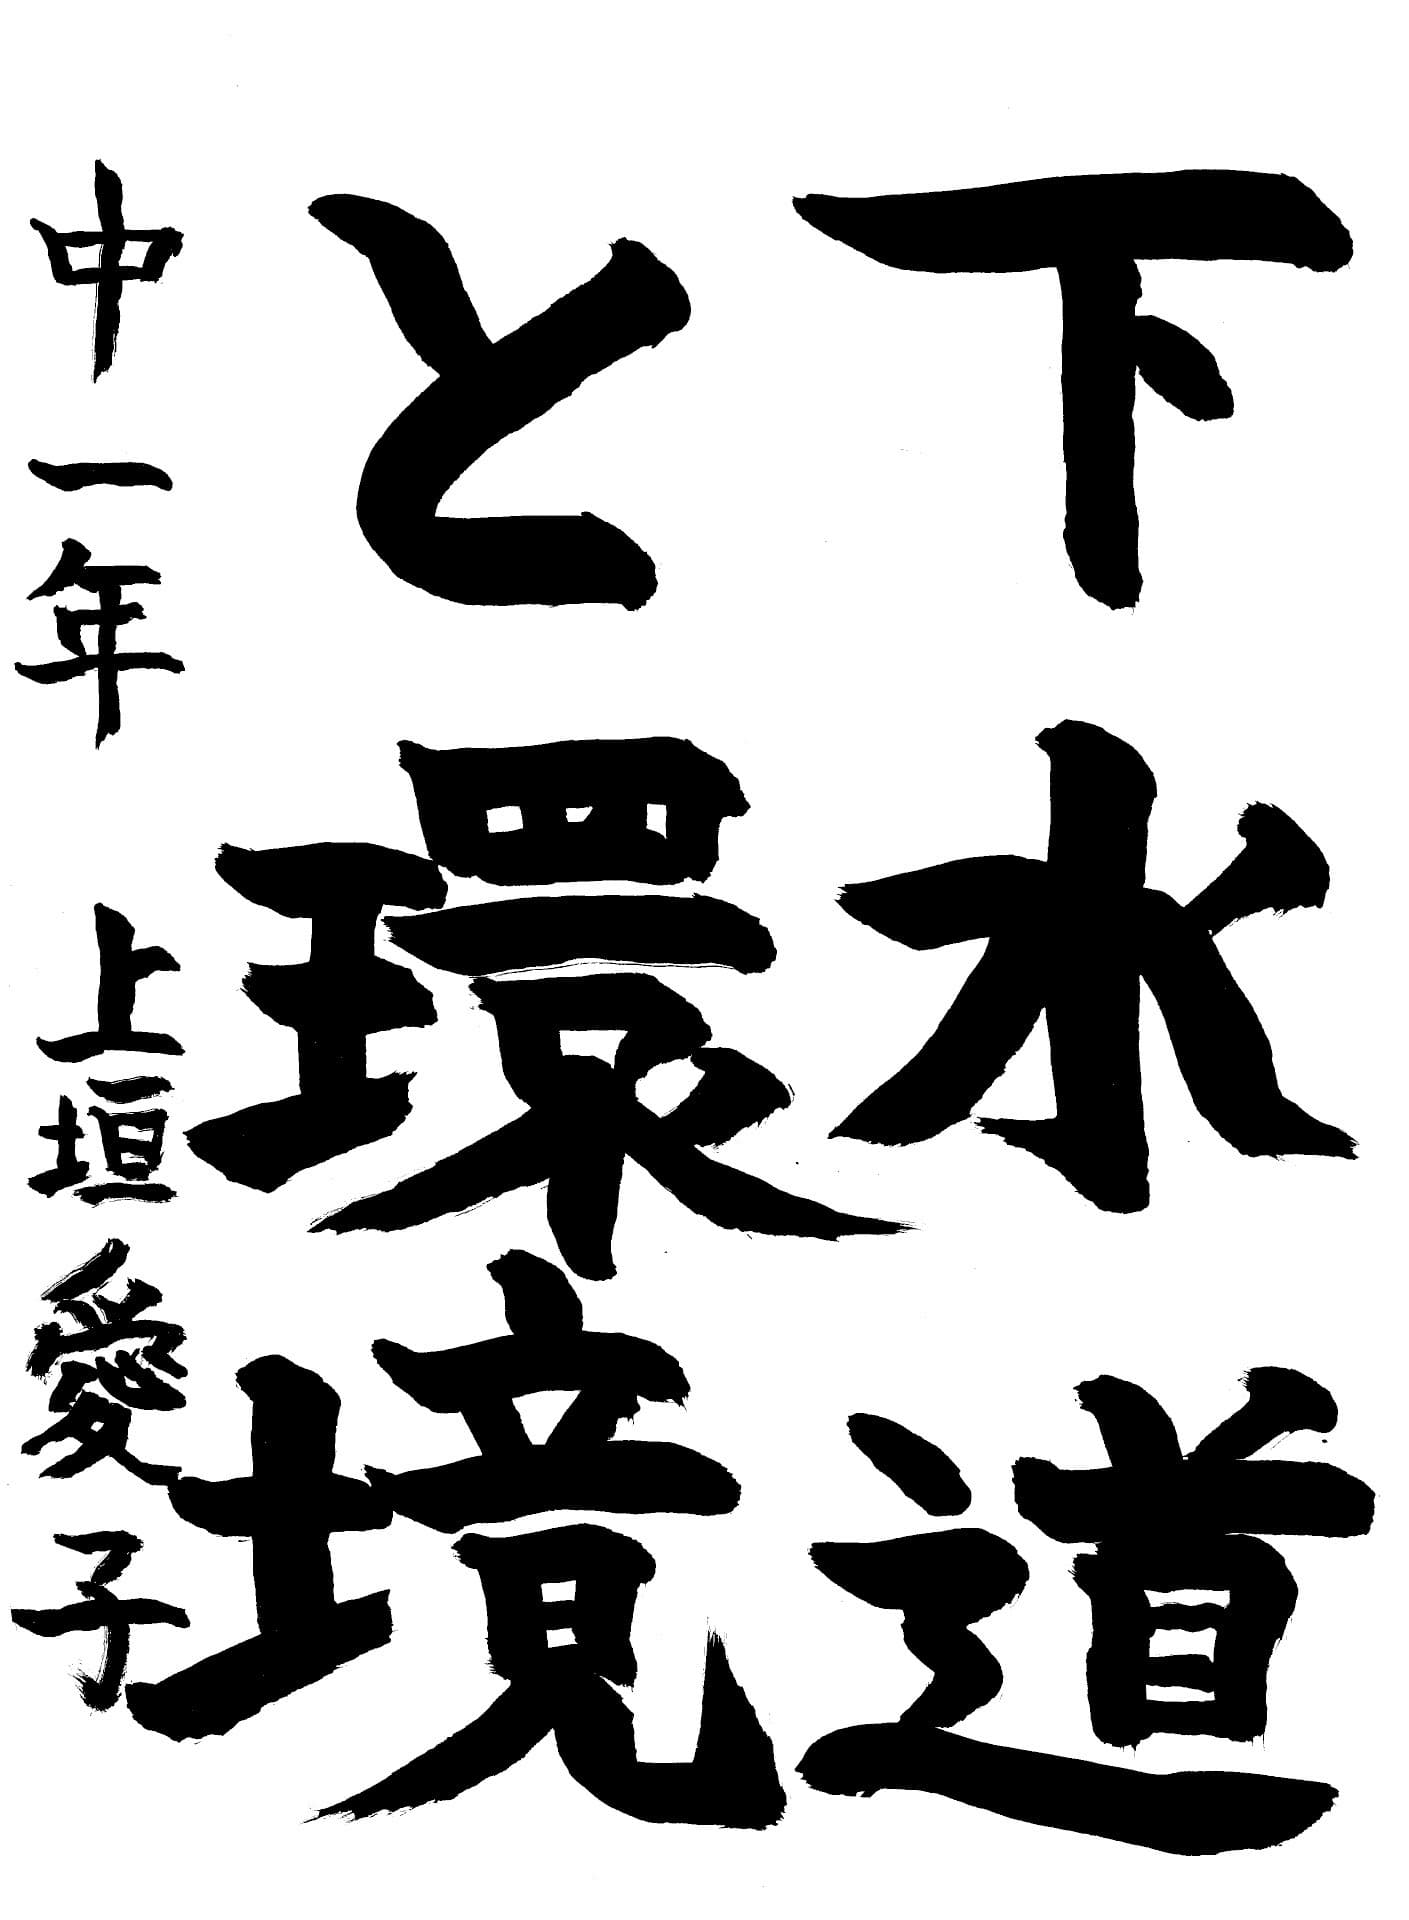 下水道
と環境
中一年 上垣愛子